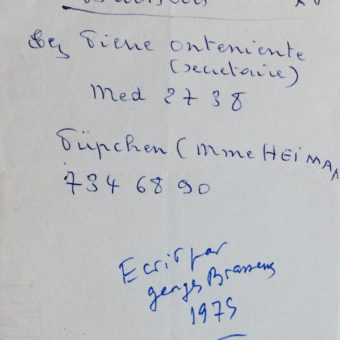 Chez Pierre Onteniente
(secretaire)
Med 27 38
Püpchen (Mme HEIMAN
734 68 90
Ecrit par
georges Brassens
1975